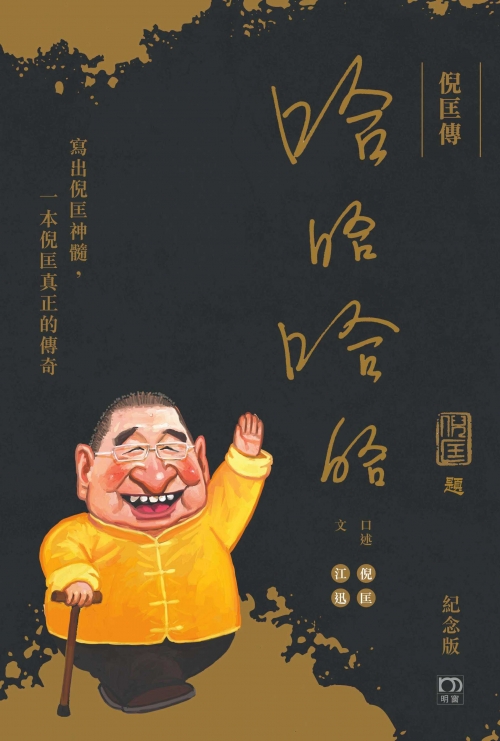 倪匡傳
哈哈哈哈
倪匡
題
口述 倪匡
文 江迅
紀念版
明窗
寫出倪匡神髓，
一本倪匡真正的傳奇